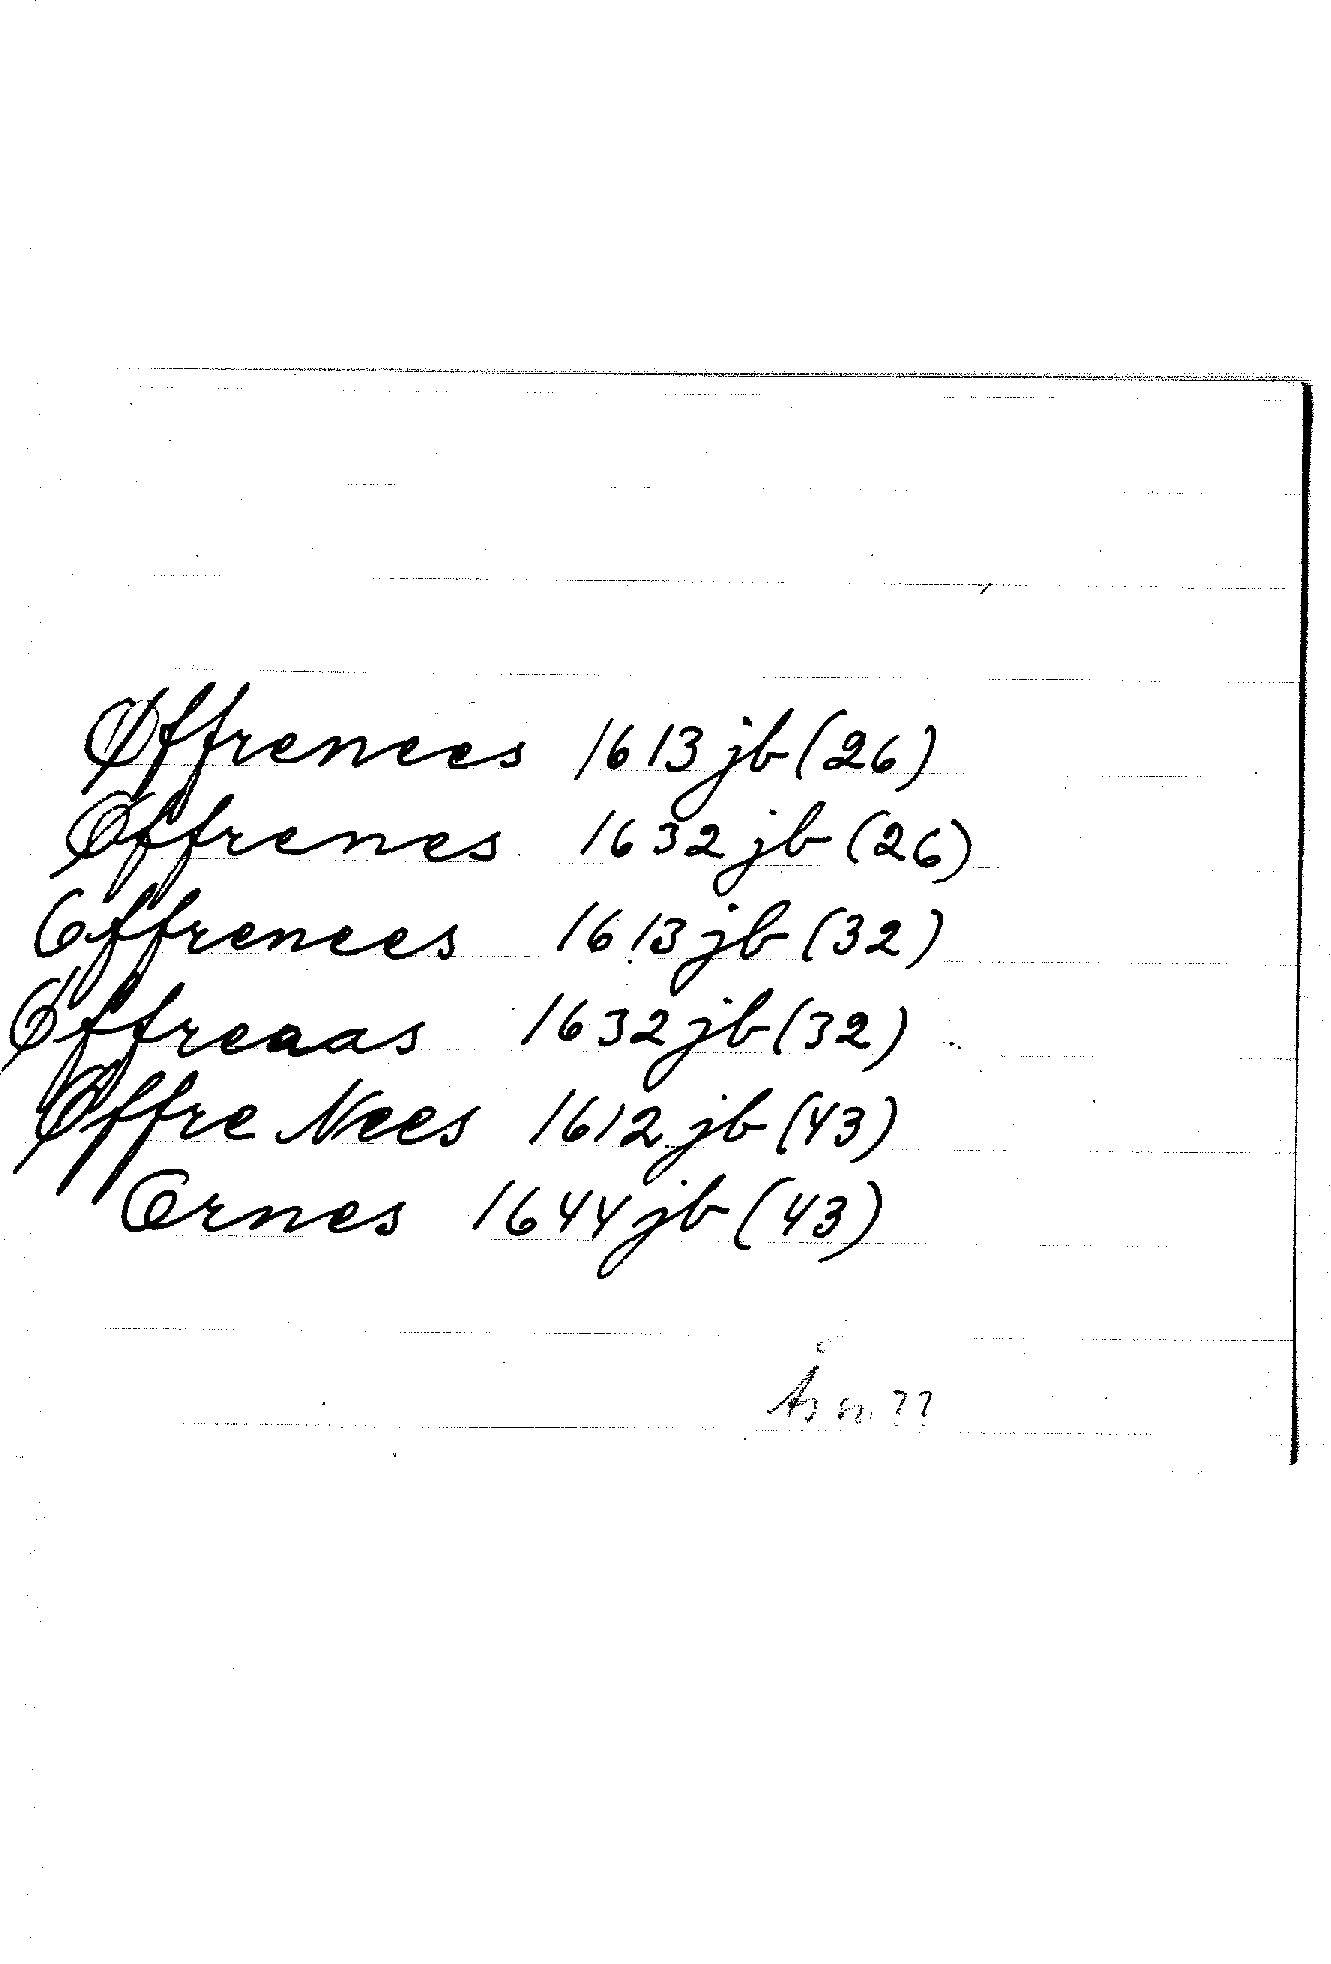 Øffrenees 1613 jb (26)
Øffrenes 1632 jb (26)
Offrenees 1613 jb (32)
Øffreaas 1632 jb (32)
Øffre Nees 1612 jb (43)
Ornes 1644 jb (43)